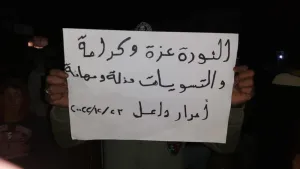 الثورة عزة وكرامة
والتسويات مذلة ومهانة
أحرار داعل ٢٠٢٢/١٢/٢٣